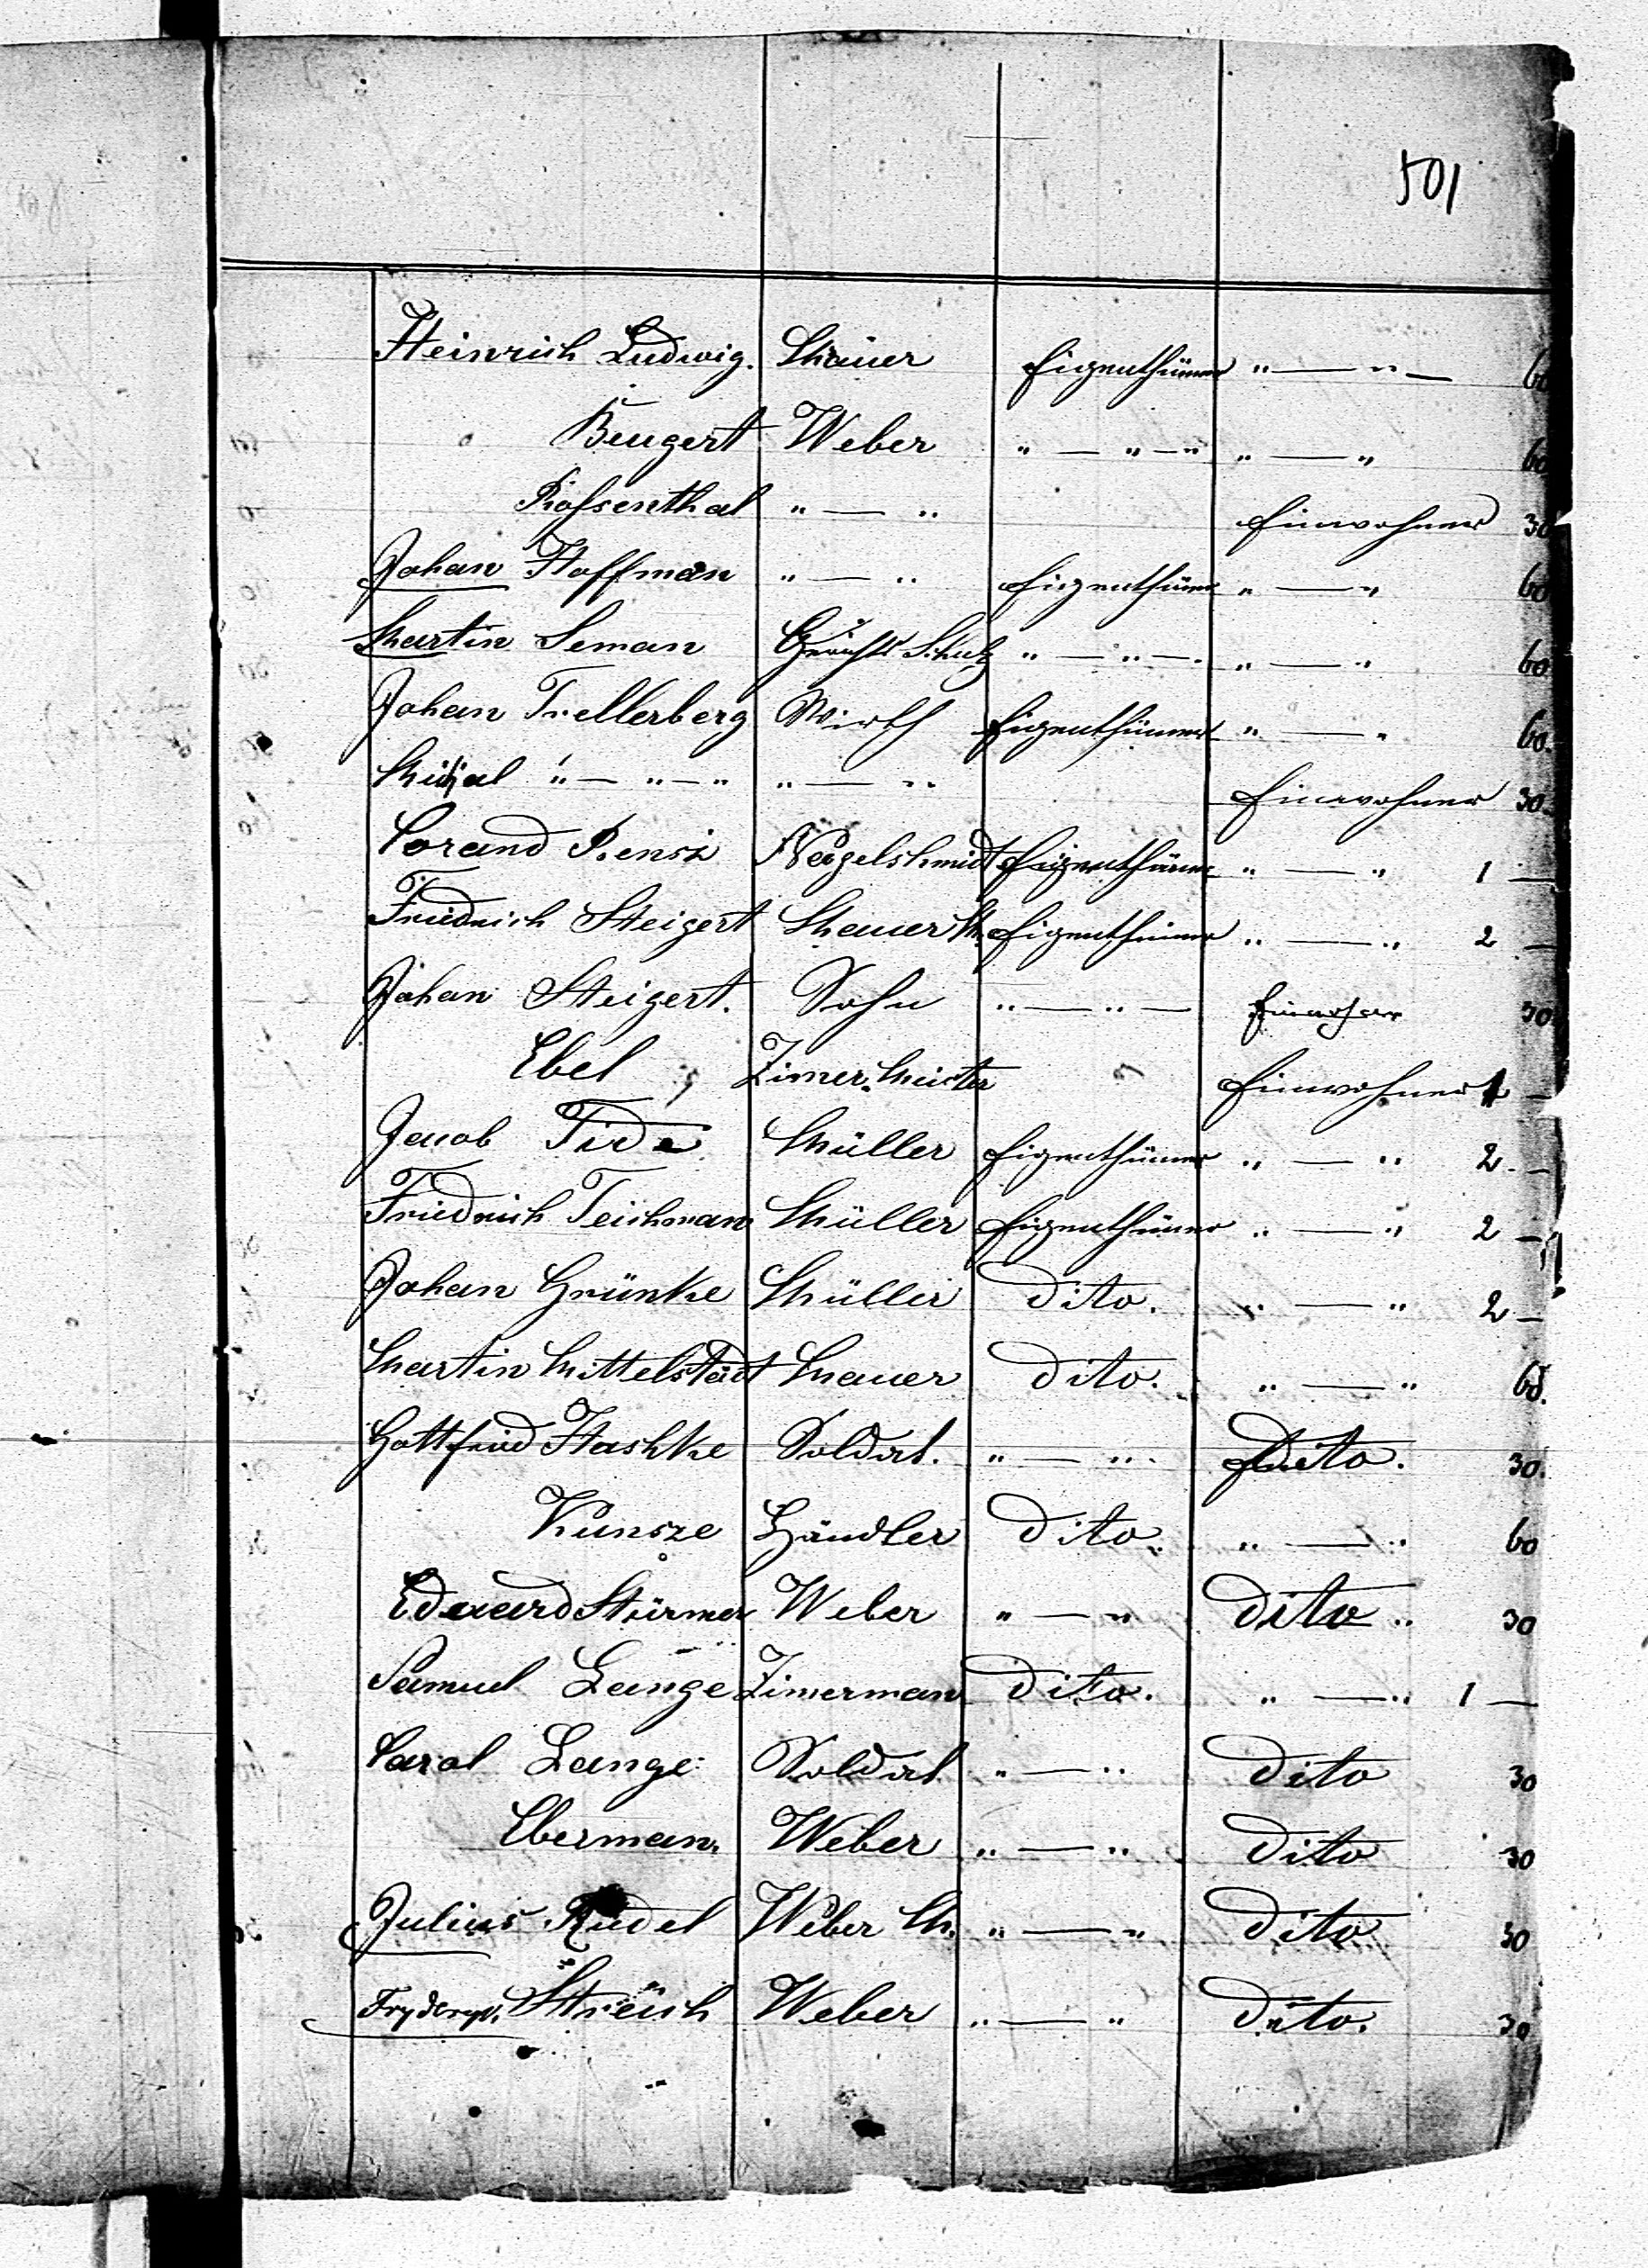 501
Heinrich Ludwig. Mauer Eigenthümer " — " — 60
Beugert Weber " — " — " " — " 60
Rossenthal " — " Einwohner 30
Johan Hoffman " — " Eigenthümer " — " 60
Martin Seman Gerichts Schulz " — " — " — " 60
Johan Trellerberg Wirth Eigenthümer " — " 60.
Michal " — " — " " — " Einwohner 30.
Corand Rensz Nagelschmidt Eigenthümer " — " 1 —
Friedrich Steigert Mauer M. Eigenthümer " — " 2 —
Johan Steigert. Sohn " — " — Einwohner 30
Ebel Zimer Meister Einwohner 1 —
Jacob Tide Müller Eigenthümer " — " 2. —
Friedrich Teichman Müller Eigenthümer " — " 2 —
Johan Grünke Müller Dito. " — " 2 —
Martin Mittelstädt Mauer Dito. " — " 60.
Gottfried Hashke Soldat. " — " Dito. 30.
Kunsze Händler Dito. " — " 60
Eduard Stürmer Weber " — " Dito 30
Samuel Lange Zimerman Dito. " — " 1 —
Carol Lange Soldat " — " Dito 30
Eberman. Weber " — " Dito 30
Julius Rudel Weber M. " — " Dito 30
Fryderyk. Streich Weber " — " Dito. 30